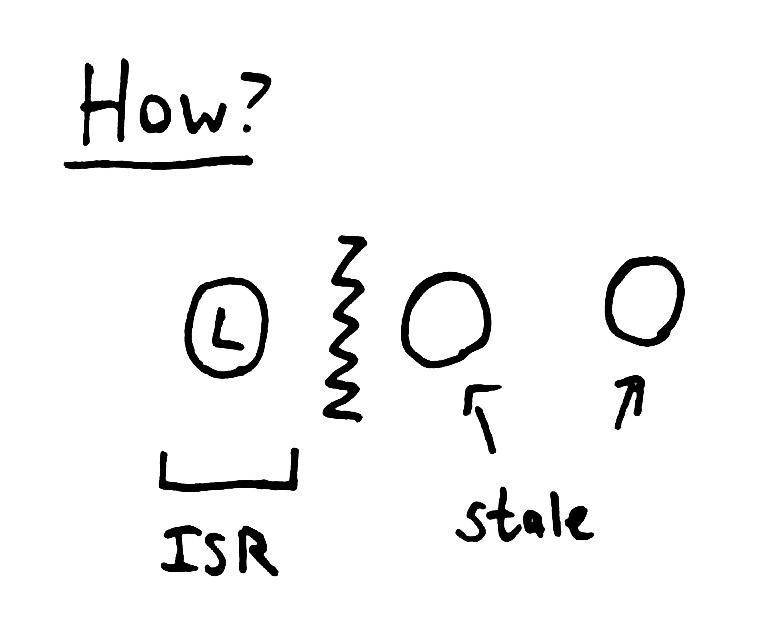 How?
L
ISR
stale